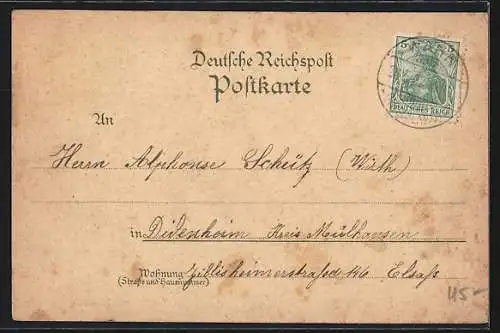 Deutsche Reichspost
Postkarte
An
Herrn Alphonse Schütz (Wirth)
in Didenheim Kreis Mülhausen
Wohnung Zillisheimerstraße 46 Elsaß
(Straße und Hausnummer)
DEUTSCHES REICH
45-